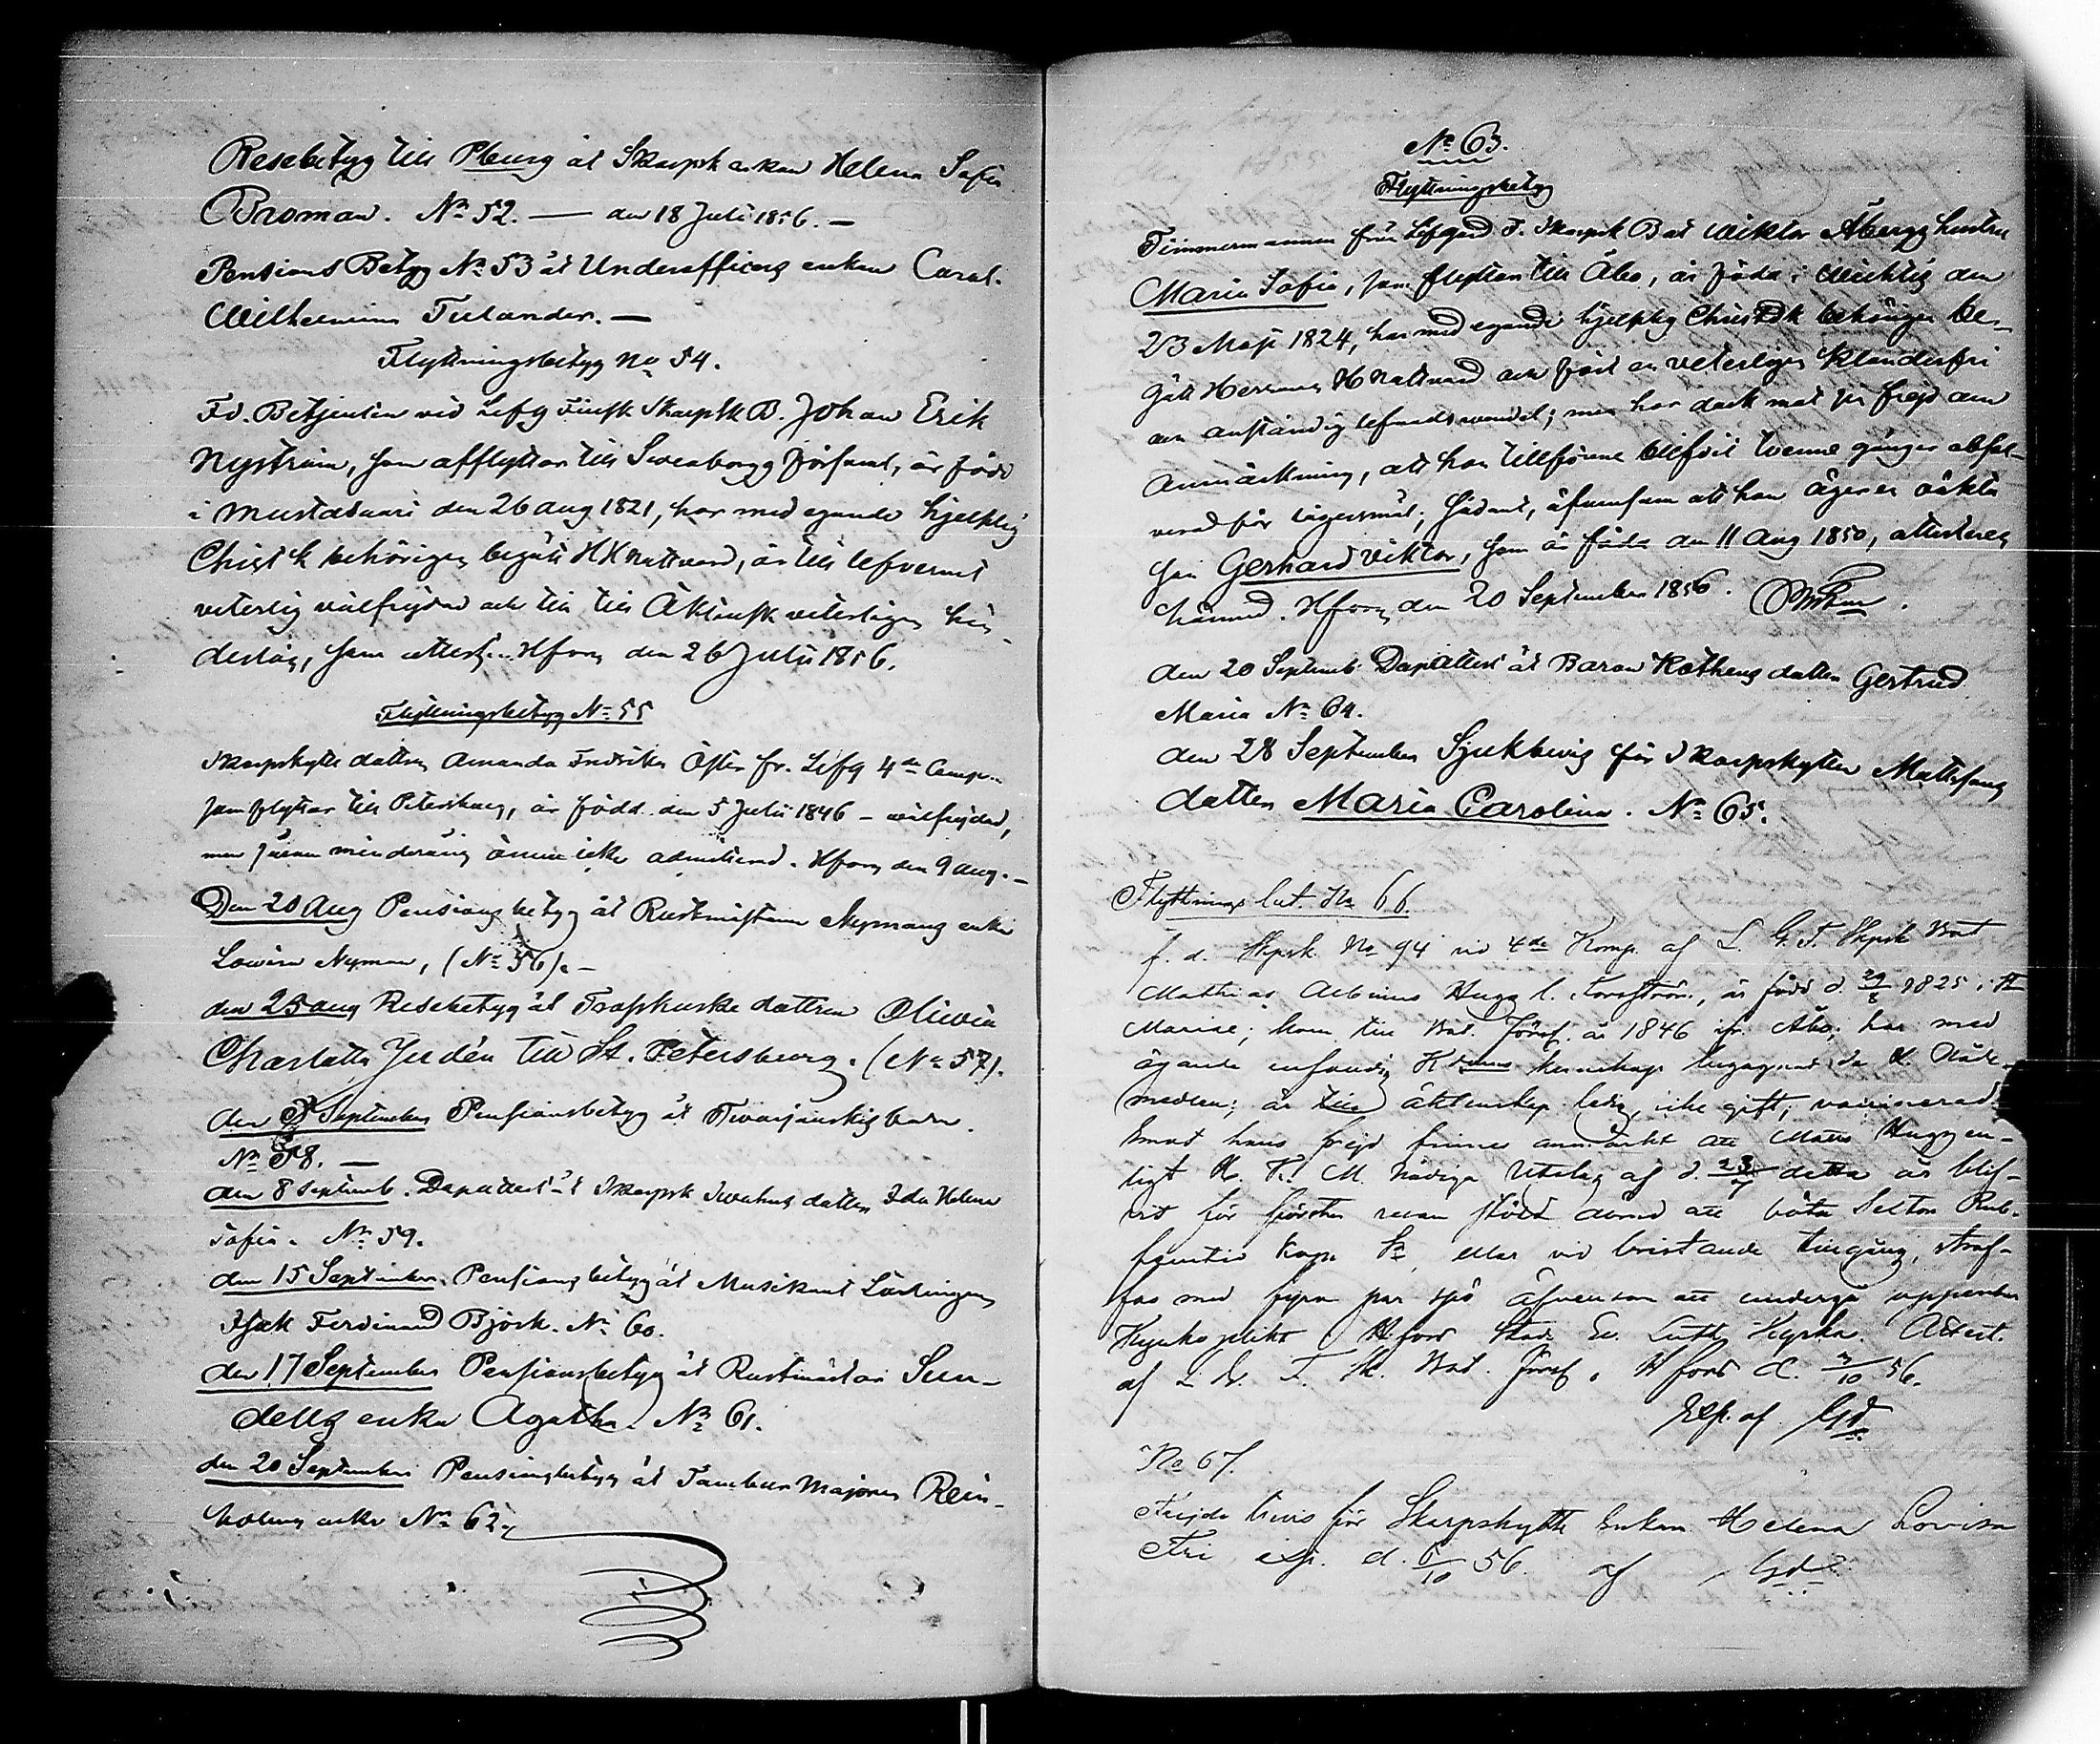 Resebetyg till Pburg åt Skarpsk enkan Helena Sofia
Broman. No 52. — den 18 Juli 1856. —
Pensions Betyg No 53 åt Underofficers enkan Carol.
Wilhelmina Tulander. —
Flyttningsbetyg No 54.
Fd. Betjenten vid Lifg Finsk Skarpsk B. Johan Erik
Nyström, som afflyttar till Sveaborgs förs, är född
i Mustasaari den 26 Aug 1821, har med egande hjelplig
Christ k behörigen begått HH Nattvard, är till lefvernet
veterlig välfrejdad och till Äktensk veterligen hin-
derslös, som attest. Hfors den 26 Juli 1856.
Flyttningsbetyg No 55
Skarpskytte dottren Amanda Fredrika Öster fr. Lifg 4de Comp.
som flyttar till Petersburg, är född den 5 Julii 1846 – välfrejdad,
men såsom minderårig ännu icke admitterad. Hfors den 9 Aug. –
Den 20 Aug Pensions betyg åt Rustmästare Nymans enka
Lovisa Nyman, (No 56). –
den 25 aug Resebetyg åt dottren Olivia
Charlotta Judén till St. Petersburg. (No 57).
den September Pensionsbetyg åt barn.
No 58. —
den 8 Septemb. Dopattest åt Skarpsk dotter Ida Helena
Sofia. No 59.
den 15 September Pensions betyg åt Musikant Lärlingen
Isak Ferdinand Björk. No 60.
den 17 September Pensionsbetyg åt Rustmästar Sun-
dells enka Agatha. No 61.
den 20 September Pensionsbetyg åt Tambur Majoren Rein-
holms enka No 62
No 63.
Flyttningsbetyg
Timmermannen från Lifgard. F. Skarpsk Bat Wiktor Åbergs hustru
Maria Sofia, som flyttar till Åbo, är född i Wichtis den
23 Maji 1824, har med egande hjelplig Christdk behörigen be-
gått Herrans H Nattvard och fört en veterligen klanderfri
och anständig lefnadsvandel; men har dock mot sin frejd den
anmärkning, att hon tillförene blifvit tvenne gånger absol-
verad för lägersmål; sådant, äfvensom att hon äger en oäkta
son Gerhard Viktor, som är född den 11 Aug 1850, attesteras
härmed. Hfors den 20 September 1856.
den 20 Septemb. Dopattest åt Baron Kothens dotter Gertrud
Maria No 64.
den 28 September Sjukbevis för Skarpskytten Mattssons
dotter Maria Carolina. No 65.
Flyttnings bet. No 66.
f. d. Skpsk. No 94 vid 4de Komp. af L. G. F. Skpsk Bat
Mathias Albinus Hugg l. Forsström, är född d. 29/8 1825 i St
Mariae; kom till Bat. Förs. år 1846 ifr. Åbo; har med
ägande enfaldig Kdoms kunskap begagnat de H. Nåde-
medlen; är till äktenskap ledig, icke gift, vaccinerad.
Emot hans frejd finnes anmärkt att Matts Hugg en-
ligt H. K. M. Nådiga Utslag af d. 23/7 detta år blif-
vit för första resan stöld dömd att böta Rub-
femtio Kop. Sr, eller vid bristande tillgång, straf-
fas med fyra par spö äfvensom att undergå uppenbar
Kyrkoplikt i Hfors Stads Ev. Luth. Kyrka. Attest.
af L. G. F. Sk. Bat. Förs., Hfors d. 3/10 56.
Exp. af
No 67.
Frejde bevis för Skarpskytte Enkan Helena Lovisa
Fri exp. d. 6/10 56. af